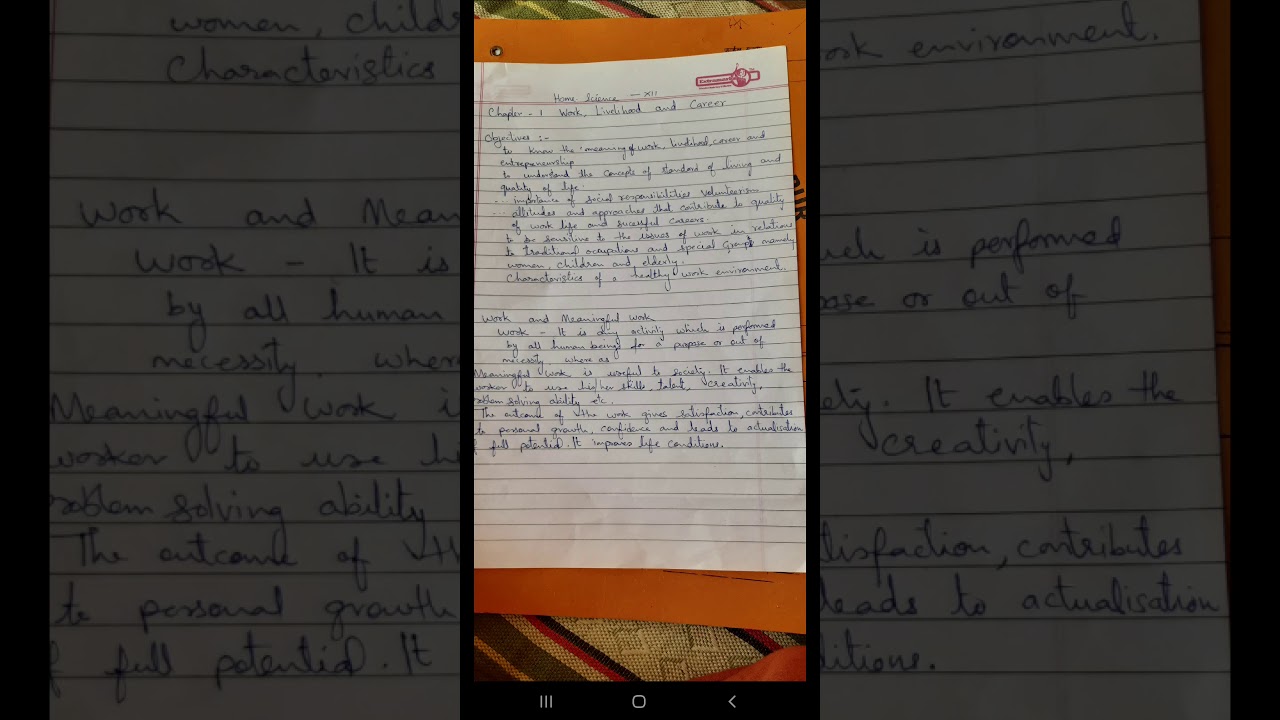 Home Science - XII
Chapter - 1 Work, Livelihood and Career
Objectives :-
to know the meaning of work, livelihood, career and
entrepreneurship
to understand the concepts of standard of living and
quality of life.
importance of social responsibilities volunteerism
attitudes and approaches that contribute to quality
of work life and sucessful careers.
to be sensitive to the issues of work in relations
to traditional occupations and special groups namely
women, children and elderly.
Characteristics of a healthy work environment.
Work and Meaningful work
Work - It is any activity which is performed
by all human beings for a purpose or out of
necessity where as
Meaningful work is useful to society. It enables the
worker to use higher skills, talent, creativity,
problem solving ability etc.
The outcome of the work gives satisfaction, contributes
to personal growth, confidence and leads to actualisation
f full potential. It improves life conditions.